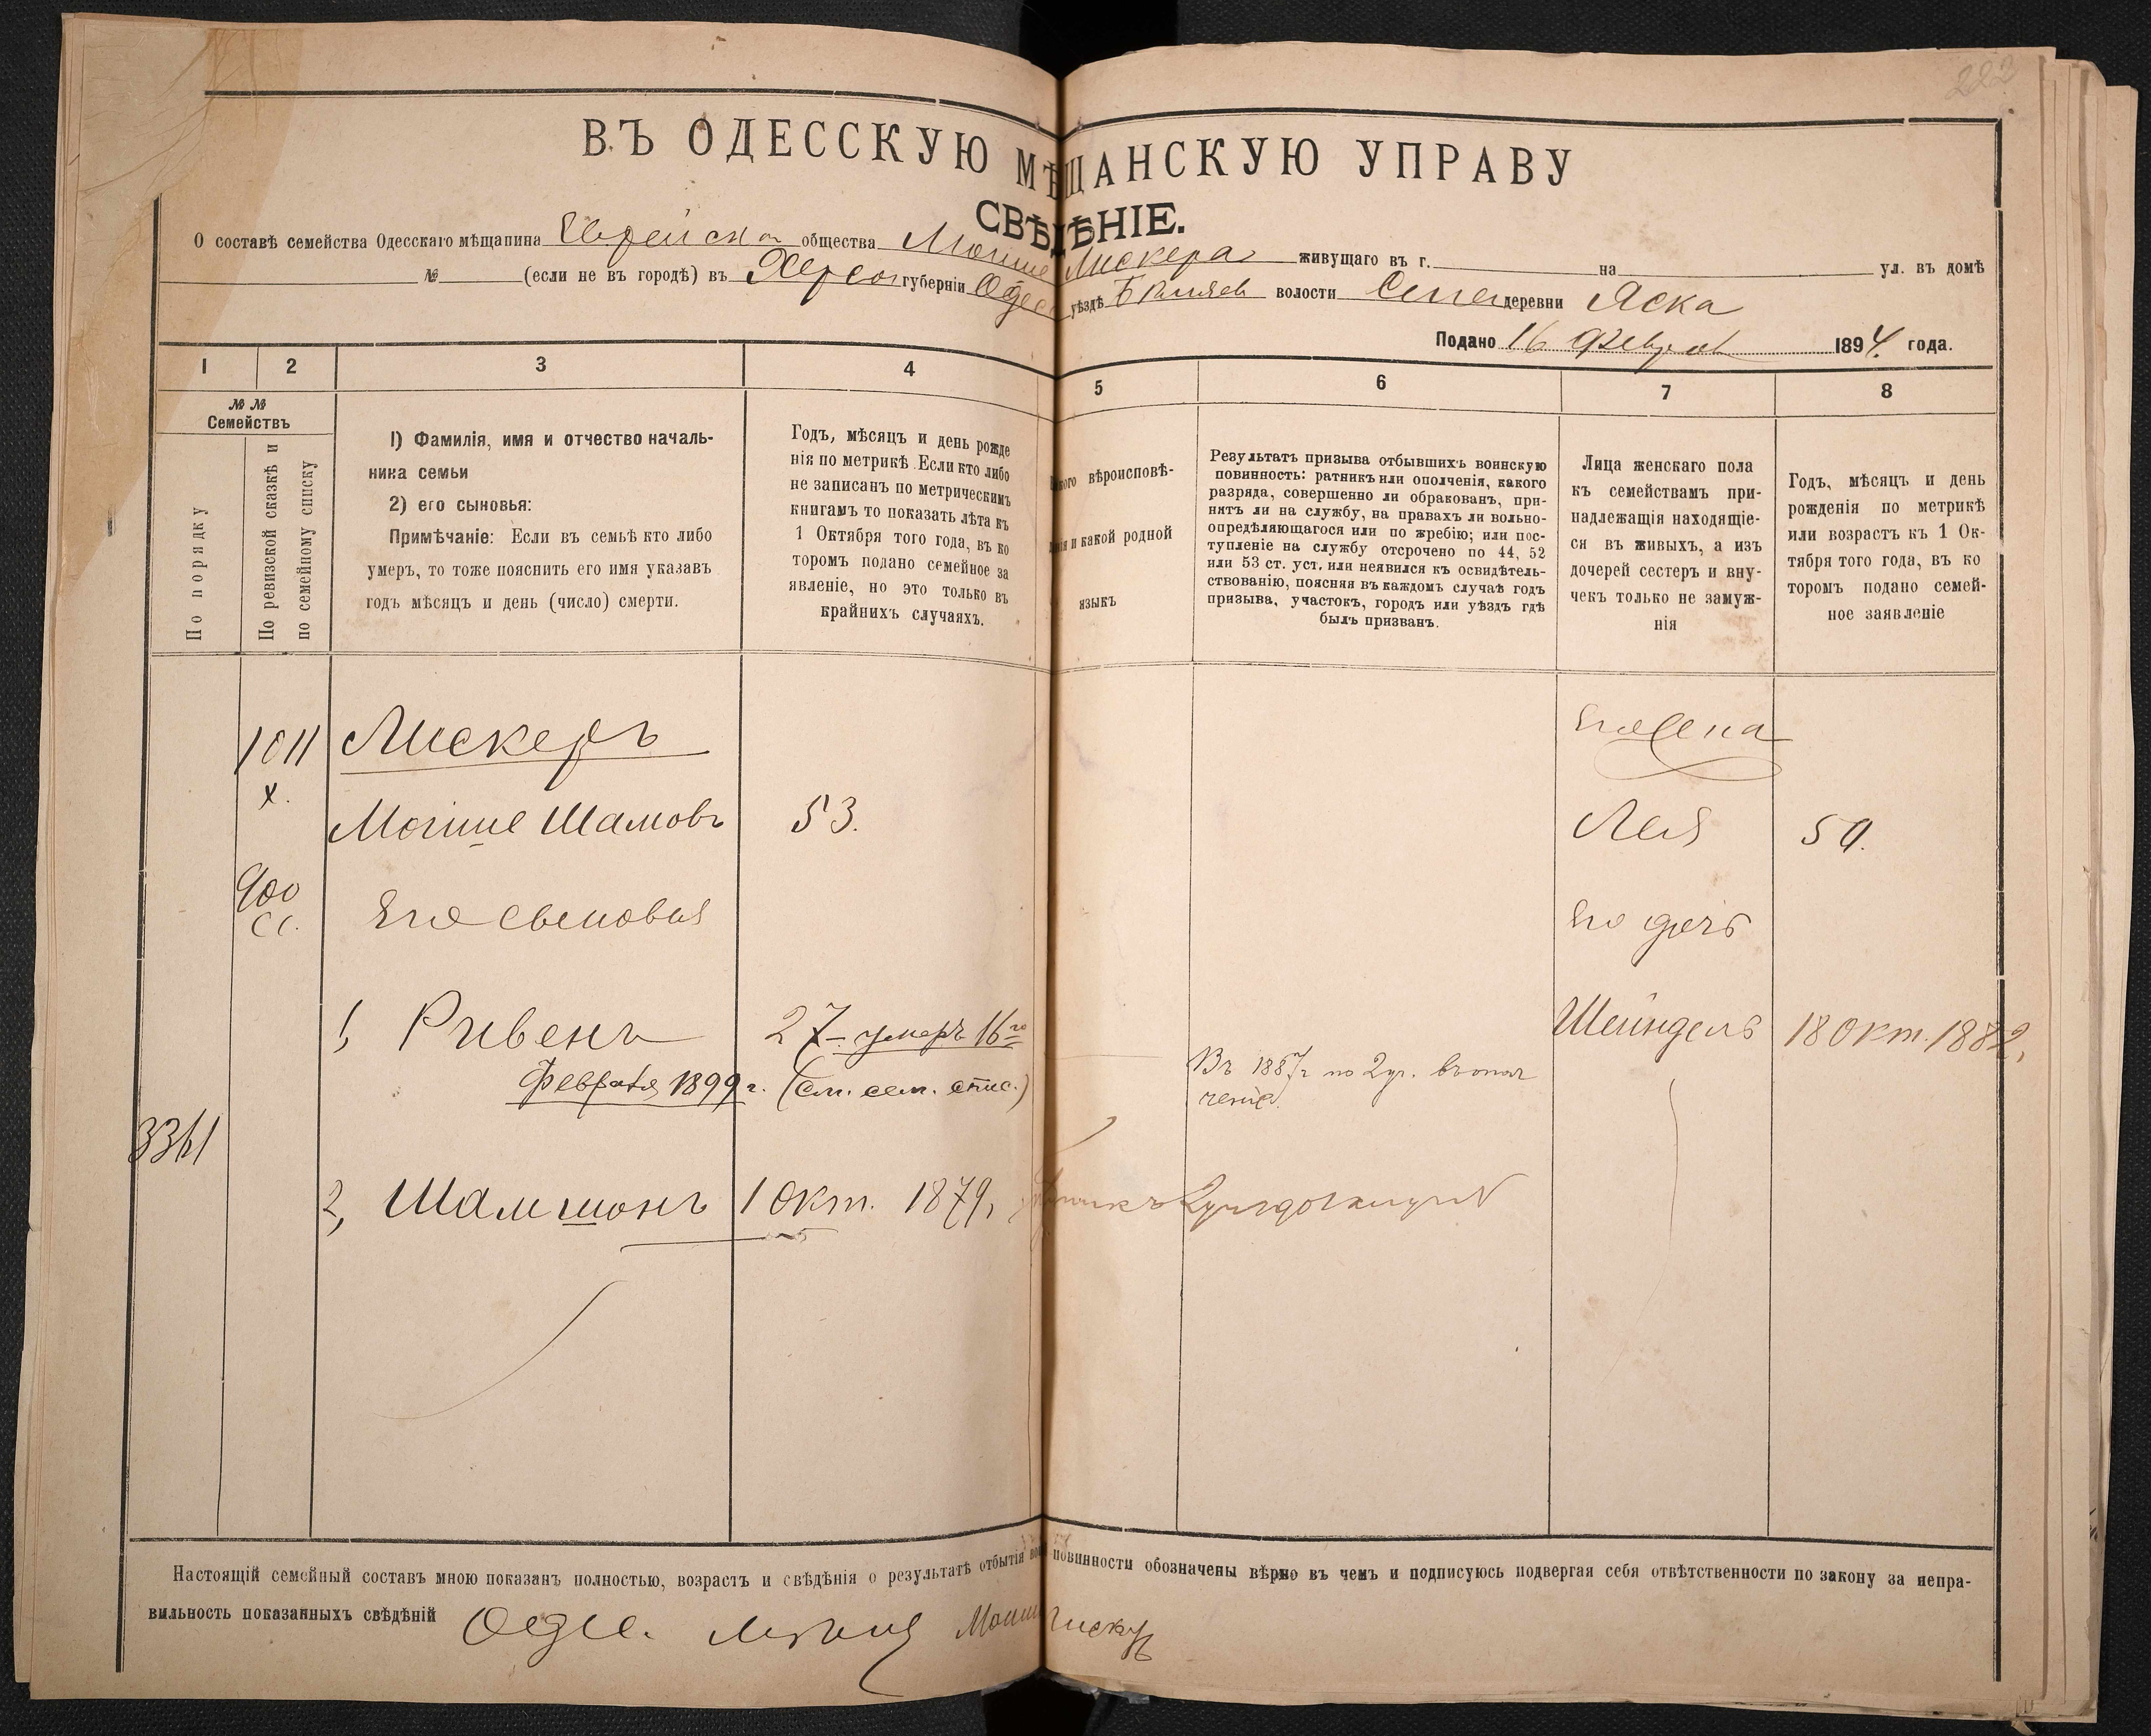 222
ВЪ ОДЕССКУЮ МѢЩАНСКУЮ УПРАВУ
СВѢДѢНІЕ.
О составѣ семейства Одесскаго мѣщанина Еврейска общества Моише Лискера живущаго въ г. на ул. въ домѣ
№ (если не въ городѣ) въ Херсон губерніи Одес уѣздѣ Бѣляев волости деревни Яска
Подано 16 Феврал 1894. года.
1 2 3 4 5 6 7 8
№ №
Семействъ
По порядку
По ревизской сказкѣ и
по семейному списку
1) Фамилія, имя и отчество началь-
ника семьи
2) его сыновья:
Примѣчаніе: Если въ семьѣ кто либо
умеръ, то тоже пояснить его имя указавъ
годъ мѣсяцъ и день (число) смерти.
Годъ, мѣсяцъ и день рожде
нія по метрикѣ Если кто либо
не записанъ по метрическимъ
книгамъ то показать лѣта къ
1 Октября того года, въ ко
торомъ подано семейное за
явленіе, но это только въ
крайнихъ случаяхъ.
вѣроисповѣ-
и какой родной
языкъ
Результатъ призыва отбывшихъ воинскую
повинность: ратникъ или ополченія, какого
разряда, совершенно ли обракованъ, при-
нятъ ли на службу, на правахъ ли вольно-
опредѣляющагося или по жребію; или пос-
тупленіе на службу отсрочено по 44, 52
или 53 ст. уст. или неявился къ освидѣтель-
ствованію, поясняя въ каждомъ случаѣ годъ
призыва, участокъ, городъ или уѣздъ гдѣ
былъ призванъ.
Лица женскаго пола
къ семействамъ при-
надлежащія находящіе-
ся въ живыхъ, а изъ
дочерей сестеръ и вну-
чекъ только не замуж-
нія
Годъ, мѣсяцъ и день
рожденія по метрикѣ
или возрастъ къ 1 Ок-
тября того года, въ ко
торомъ подано семей-
ное заявленіе
1011 Лискеръ
х.
Моише Шамовъ 53. Лея 50.
900
сс.
Его сыновья Его дочь
1, Рувенъ 27 - умеръ 16го Шейндель 18 Окт. 1882,
Февраля 1899 г. (см. сем. спис.) Въ 1887г по 2 уч. въ опол
чение.
3361
2, Шамшонъ 1 Окт. 1879,
Настоящій семейный составъ мною показанъ полностью, возрастъ и свѣдѣнія о результатѣ отбытія повинности обозначены вѣрно въ чемъ и подписуюсь подвергая себя отвѣтственности по закону за непра-
вильность показанныхъ свѣдѣній Одес. мѣщан Моиш Лискер